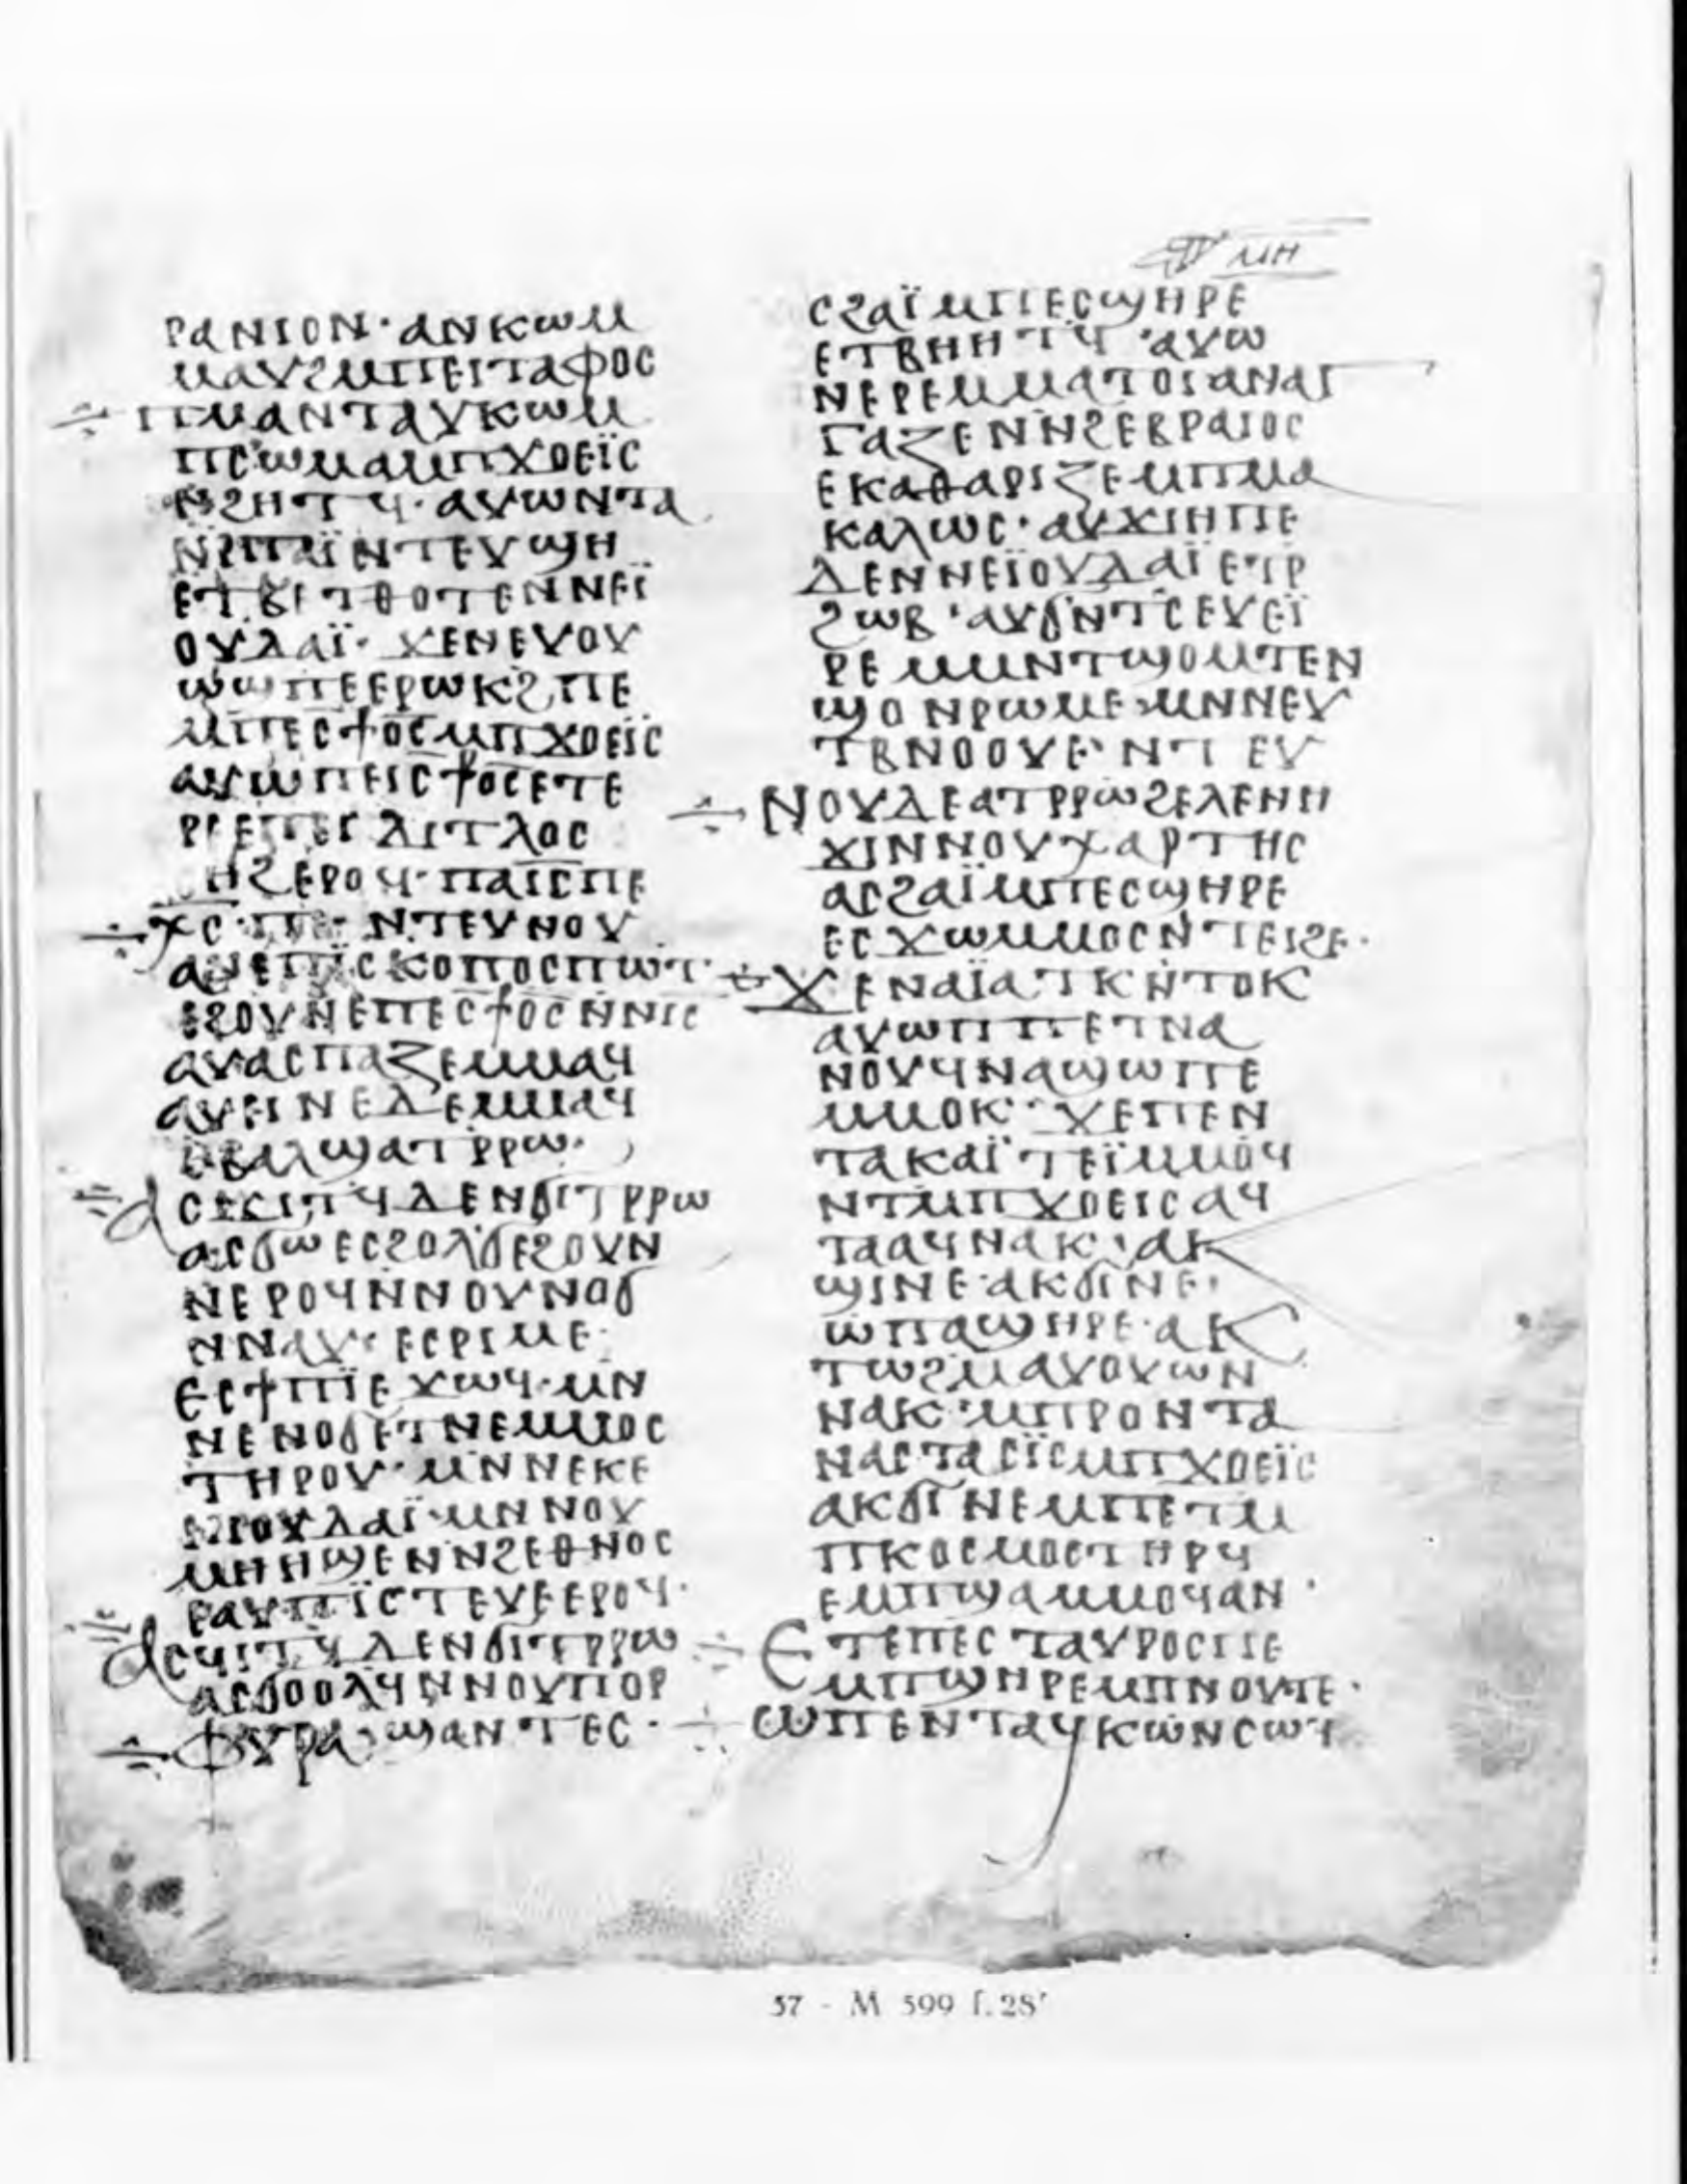 ⲙⲏ
ⲣⲁⲛⲓⲟⲛ· ⲁⲛⲕⲱⲙ
ⲙⲁⲩϩⲙⲡⲉⲓⲧⲁⲫⲟⲥ
ⲡⲙⲁⲛⲧⲁⲩⲕⲱⲙ
ⲡⲥⲱⲙⲁⲙⲡϫⲟⲉⲓ̈ⲥ
ⲛϩⲏⲧϥ· ⲁⲩⲱⲛⲧⲁ
ⲛⲣⲡⲁⲓ̈ⲛⲧⲉⲩϣⲏ
ⲉⲧⲃⲉⲡⲫⲑⲟⲛⲟⲥ
ⲟⲩⲇⲁⲓ̈· ϫⲉⲛⲉⲩⲟⲩ
ⲱϣⲡⲉⲉⲣⲱⲕϩⲡⲉ
ⲙⲡⲉⲥϯⲟⲥⲙⲡϫⲟⲉⲓ̈ⲥ
ⲁⲩⲱⲡⲉⲓⲥϯⲟⲥⲉⲧⲉ
ⲣⲉⲡⲉⲓⲇⲓⲧⲗⲟⲥ
ⲥⲏϩⲉⲣⲟϥ· ⲡⲁⲓⲥⲡⲉ
ⲭⲥ· ⲛⲧⲉⲩⲛⲟⲩ
ⲁⲡⲉⲡⲓ̈ⲥⲕⲟⲡⲟⲥⲡⲱⲧ·
ⲉϩⲟⲩⲛⲉⲡⲉⲥϯⲟⲥⲛⲛⲓⲥ
ⲁⲩⲁⲥⲡⲁⲍⲉⲙⲙⲁϥ
ⲁⲩⲉⲓⲛⲉⲇⲉⲙⲙⲁϥ
ⲉⲃⲁⲗϣⲁⲧⲣⲣⲱ·
ⲁⲥϫⲓⲧϥⲇⲉⲛϭⲓⲧⲣⲣⲱ
ⲁⲥϭⲱⲉⲥϩⲟⲗϭⲉϩⲟⲩⲛ
ⲛⲉⲣⲟϥⲛⲛⲟⲩⲛⲟϭ
ⲛⲛⲁⲩ· ⲉⲥⲣⲓⲙⲉ·
ⲉⲥϯⲡⲓ̈ⲉϫⲱϥ· ⲙⲛ
ⲛⲉⲛⲟϭⲉⲧⲛⲉⲙⲙⲟⲥ
ⲧⲏⲣⲟⲩ· ⲙⲛⲛⲉⲕⲉ
ⲛⲓⲟⲩⲇⲁⲓ̈· ⲙⲛⲛⲟⲩ
ⲙⲏⲏϣⲉⲛⲛϩⲉⲑⲛⲟⲥ
ⲉⲁⲩⲡⲓ̈ⲥⲧⲉⲩⲉⲉⲣⲟϥ·
ⲁⲥϥⲓⲧϥⲇⲉⲛϭⲓⲧⲣⲣⲱ
ⲁⲥϭⲟⲟⲗϥⲛⲛⲟⲩⲡⲟⲣ
ⲫⲩⲣⲁ· ϣⲁⲛⲧⲉⲥ·
ⲥϩⲁⲓ̈ⲙⲡⲉⲥϣⲏⲣⲉ
ⲉⲧⲃⲏⲏⲧϥ· ⲁⲩⲱ
ⲛⲉⲣⲉⲙⲙⲁⲧⲟⲓⲁⲛⲁⲅ
ⲅⲁⲍⲉⲛⲛϩⲉⲃⲣⲁⲓⲟⲥ
ⲉⲕⲁⲑⲁⲣⲓⲍⲉⲙⲡⲙⲁ
ⲕⲁⲗⲱⲥ· ⲁⲩϫⲓⲏⲡⲉ
ⲇⲉⲛⲛⲉⲓ̈ⲟⲩⲇⲁⲓ̈ⲉⲧⲣ
ϩⲱⲃ· ⲁⲩϭⲛⲧⲥⲉⲩⲉⲓ̈
ⲣⲉⲙⲙⲛⲧϣⲟⲙⲧⲉⲛ
ϣⲟⲛⲣⲱⲙⲉ· ⲙⲛⲛⲉⲩ
ⲧⲃⲛⲟⲟⲩⲉ· ⲛⲧⲉⲩ
ⲛⲟⲩⲇⲉⲁⲧⲣⲣⲱϩⲉⲗⲉⲛⲏ
ϫⲓⲛⲛⲟⲩⲭⲁⲣⲧⲏⲥ
ⲁⲥϩⲁⲓ̈ⲙⲡⲉⲥϣⲏⲣⲉ
ⲉⲥϫⲱⲙⲙⲟⲥⲛⲧⲉⲓϩⲉ·
ϫⲉⲛⲁⲓ̈ⲁⲧⲕⲛⲧⲟⲕ
ⲁⲩⲱⲡⲡⲉⲧⲛⲁ
ⲛⲟⲩϥⲛⲁϣⲱⲡⲉ
ⲙⲙⲟⲕ· ϫⲉⲡⲉⲛ
ⲧⲁⲕⲁⲓ̈ⲧⲉⲓ̈ⲙⲙⲟϥ
ⲛⲧⲙⲡϫⲟⲉⲓⲥⲁϥ
ⲧⲁⲁϥⲛⲁⲕ· ⲁⲕ
ϣⲓⲛⲉ· ⲁⲕϭⲓⲛⲉ·
ⲱⲡⲁϣⲏⲣⲉ· ⲁⲕ
ⲧⲱϩⲙⲁⲩⲟⲩⲱⲛ
ⲛⲁⲕ· ⲙⲡⲣⲟⲛⲧⲁ
ⲛⲁⲥⲧⲁⲥⲓ̈ⲥⲙⲡϫⲟⲉⲓ̈ⲥ
ⲁⲕϭⲓⲛⲉⲙⲡⲉⲧⲙ
ⲡⲕⲟⲥⲙⲟⲥⲧⲏⲣϥ
ⲉⲙⲡϣⲁⲙⲙⲟϥⲁⲛ·
ⲉⲧⲉⲡⲉⲥⲧⲁⲩⲣⲟⲥⲡⲉ
ⲙⲡϣⲏⲣⲉⲙⲡⲛⲟⲩⲧⲉ·
ⲱⲡⲉⲛⲧⲁϥⲕⲱⲛⲥⲱϥ
57 - M 599 f. 28ʳ